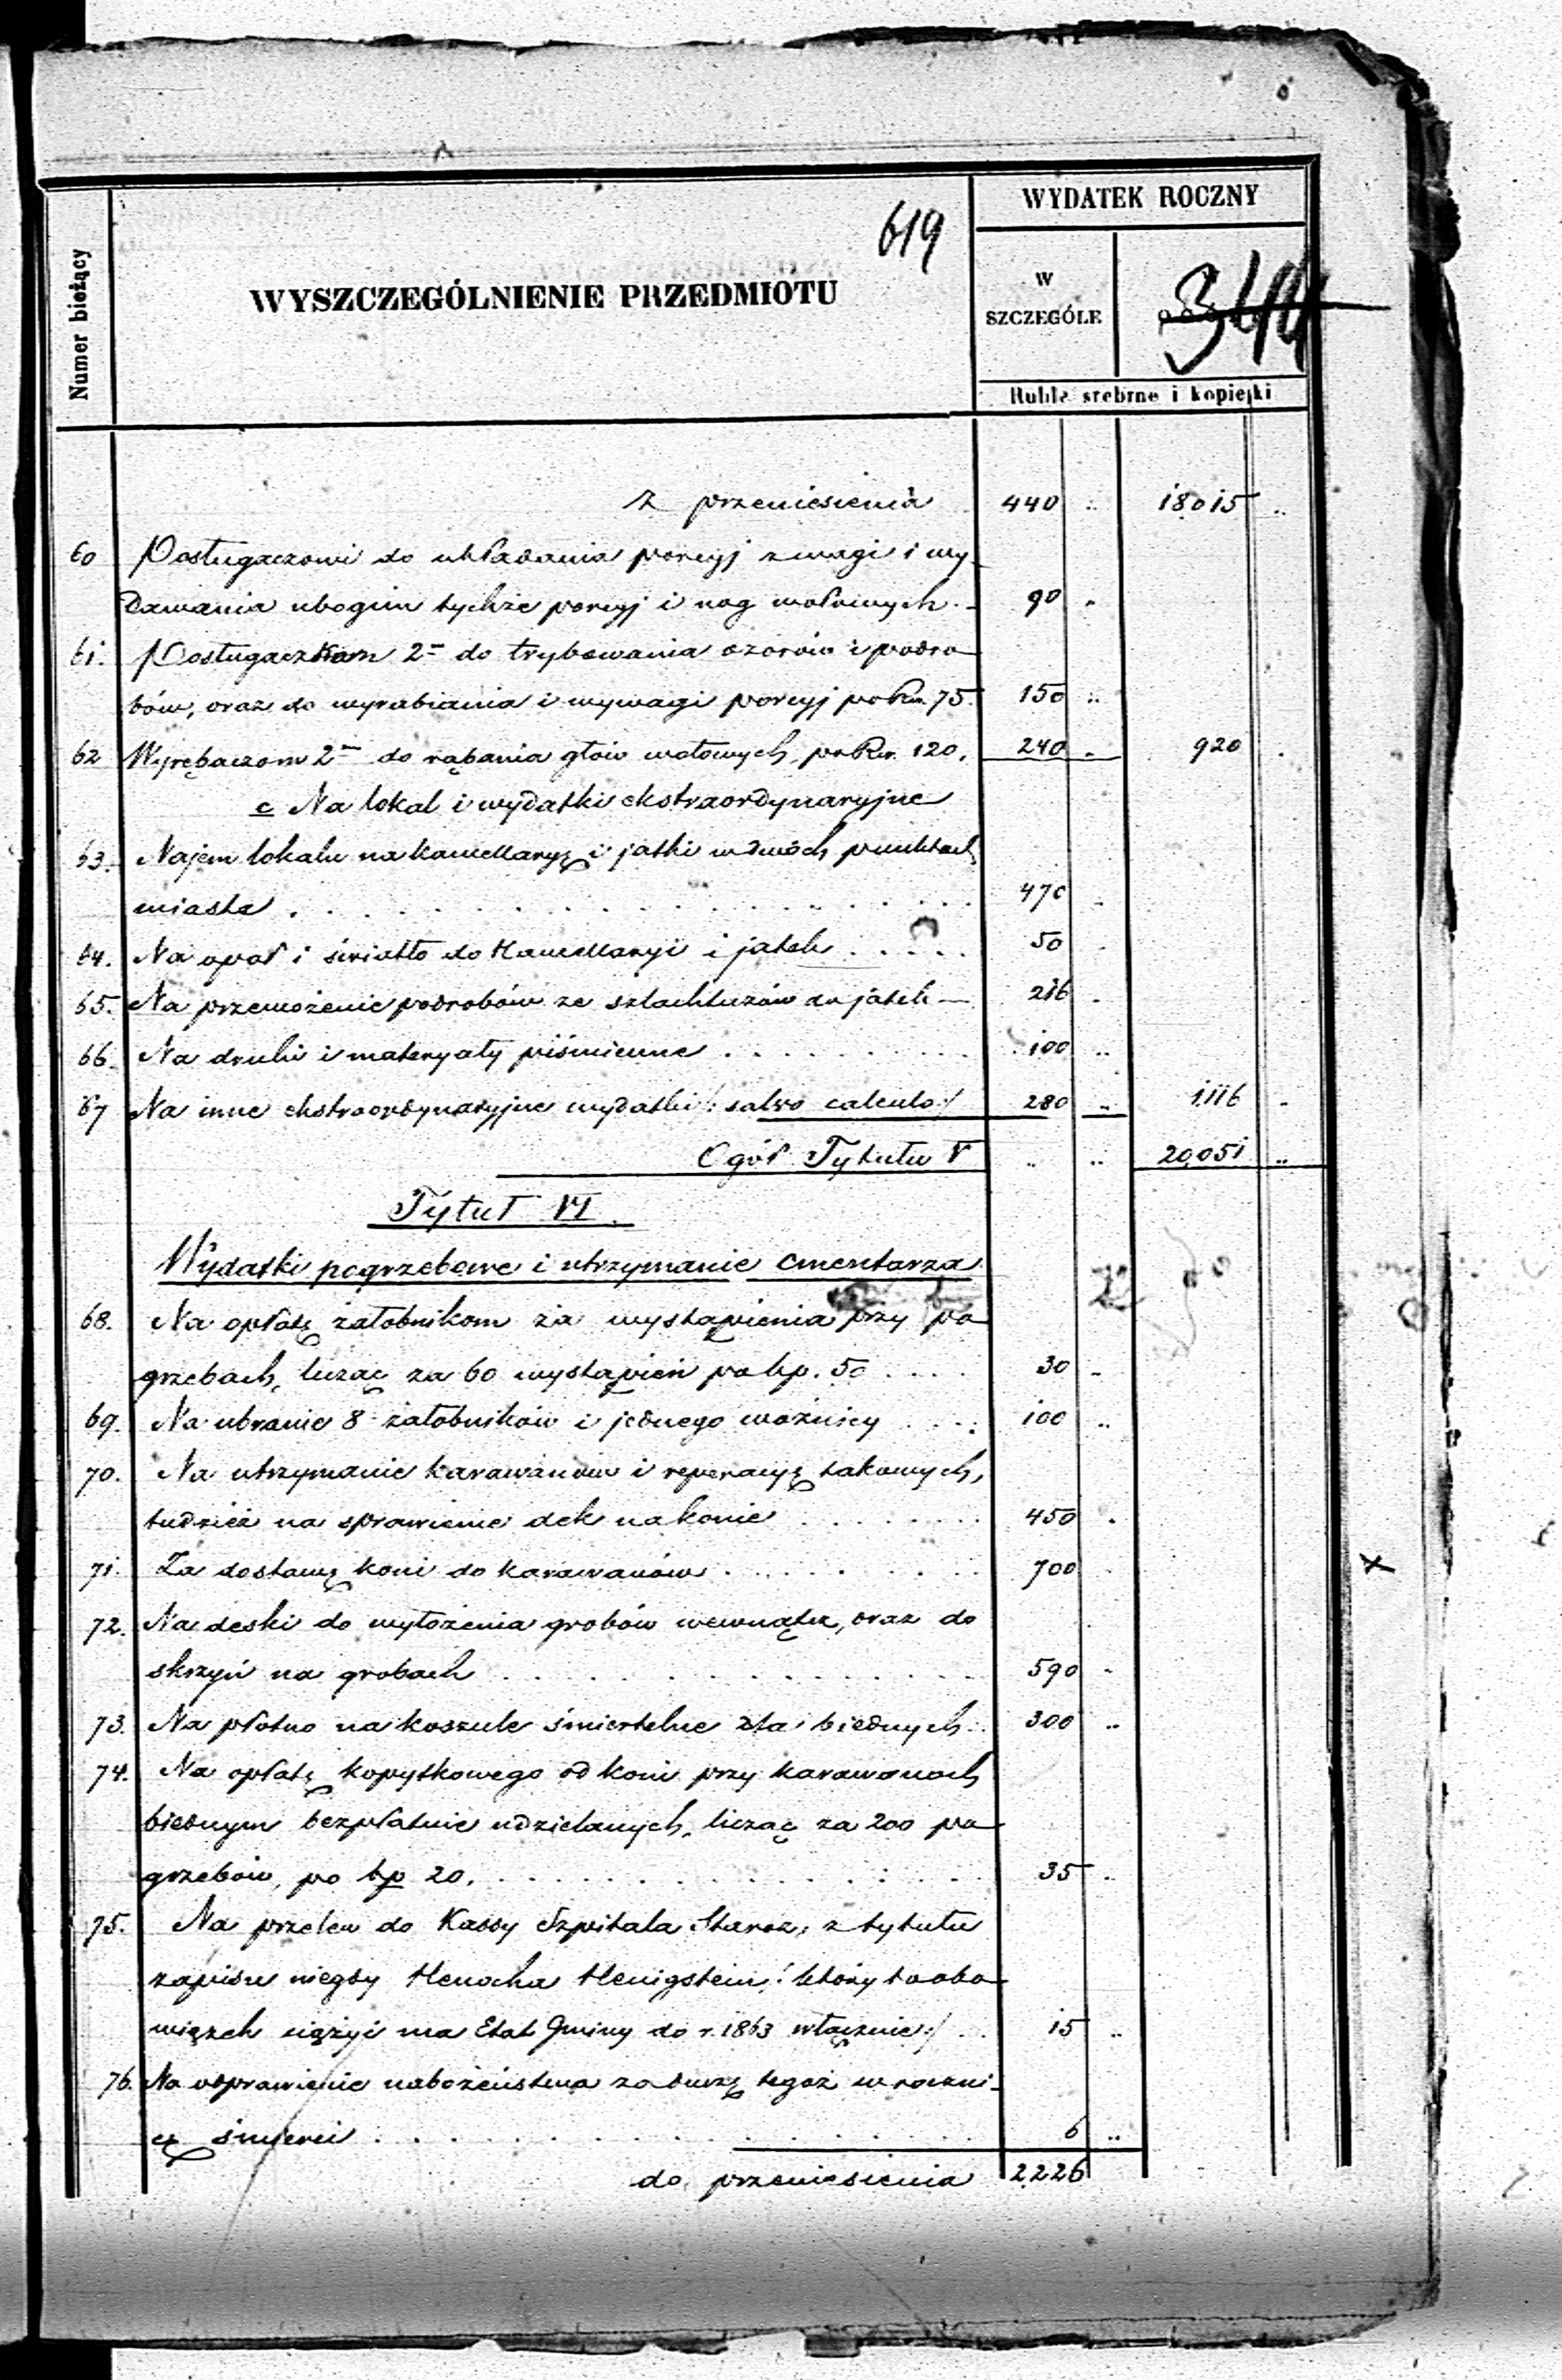 619
WYDATEK ROCZNY
Numer bieżący
WYSZCZEGÓLNIENIE PRZEDMIOTU
W SZCZEGÓLE
344
Ruble srebrne i kopiejki
Z przeniesienia 440 .. 18015 ..
60 Posługaczowi do układania porcyj z wagi i wy-
dawania ubogim tychże porcyj i nog wołowych. 90 "
61. Posługaczkom 2m do trybowania ozorów i podro-
bów, oraz do wyrabiania i wywagi porcyj po Rs. 75. 150 ..
62 Wyrębaczom 2m do rąbania głów wołowych po Rs. 120. 240 " 920 .
c Na lokal i wydatki ekstraordynaryjne
63. Najem lokalu na kancellaryę i jatki w dwóch punktach
miasta . . . 470 ..
64. Na opał i światło do Kancellaryi i jatek . . . 50 .
65. Na przewożenie podrobów ze szlachtuzów do jatek — 216 .
66. Na druki i materyały piśmienne . . . 100 ..
67 Na inne ekstraordynaryjne wydatki /: salvo calculo :/ 280 .. 1116 .
Ogół Tytułu V .. .. 20,051 ..
Tytuł VI.
Wydatki pogrzebowe i utrzymanie cmentarza
68. Na opłatę żałobnikom za wystąpienia przy po-
grzebach, licząc za 60 wystąpień po kp. 50 . . . 30 ..
69. Na ubranie 8 żałobników i jednego woźnicy . . . 100 ..
70. Na utrzymanie karawanów i reperacyę takowych,
tudzież na sprawienie dek na konie . . . 450 .
71. Za dostawę koni do karawanów . . . 700
72. Na deski do wyłożenia grobów wewnątrz, oraz do
skrzyń na grobach . . . 590 .
73. Na płótno na koszule śmiertelne dla biednych . . 300 ..
74. Na opłatę kopytkowego od koni przy karawanach
biednym bezpłatnie udzielanych, licząc za 200 po-
grzebów, po kp 20. . . . 35 ..
75. Na przelew do Kassy Szpitala Staroz: z tytułu
zapisu niegdy Henocha Henigstein /: który to obo-
wiązek ciążyć ma Etat Gminy do r. 1863 włącznie :/ . . 15 ..
76. Na odprawienie nabożeństwa za duszę tegoż w roczni-
cę śmierci . . . 6 ..
do przeniesienia 2,226